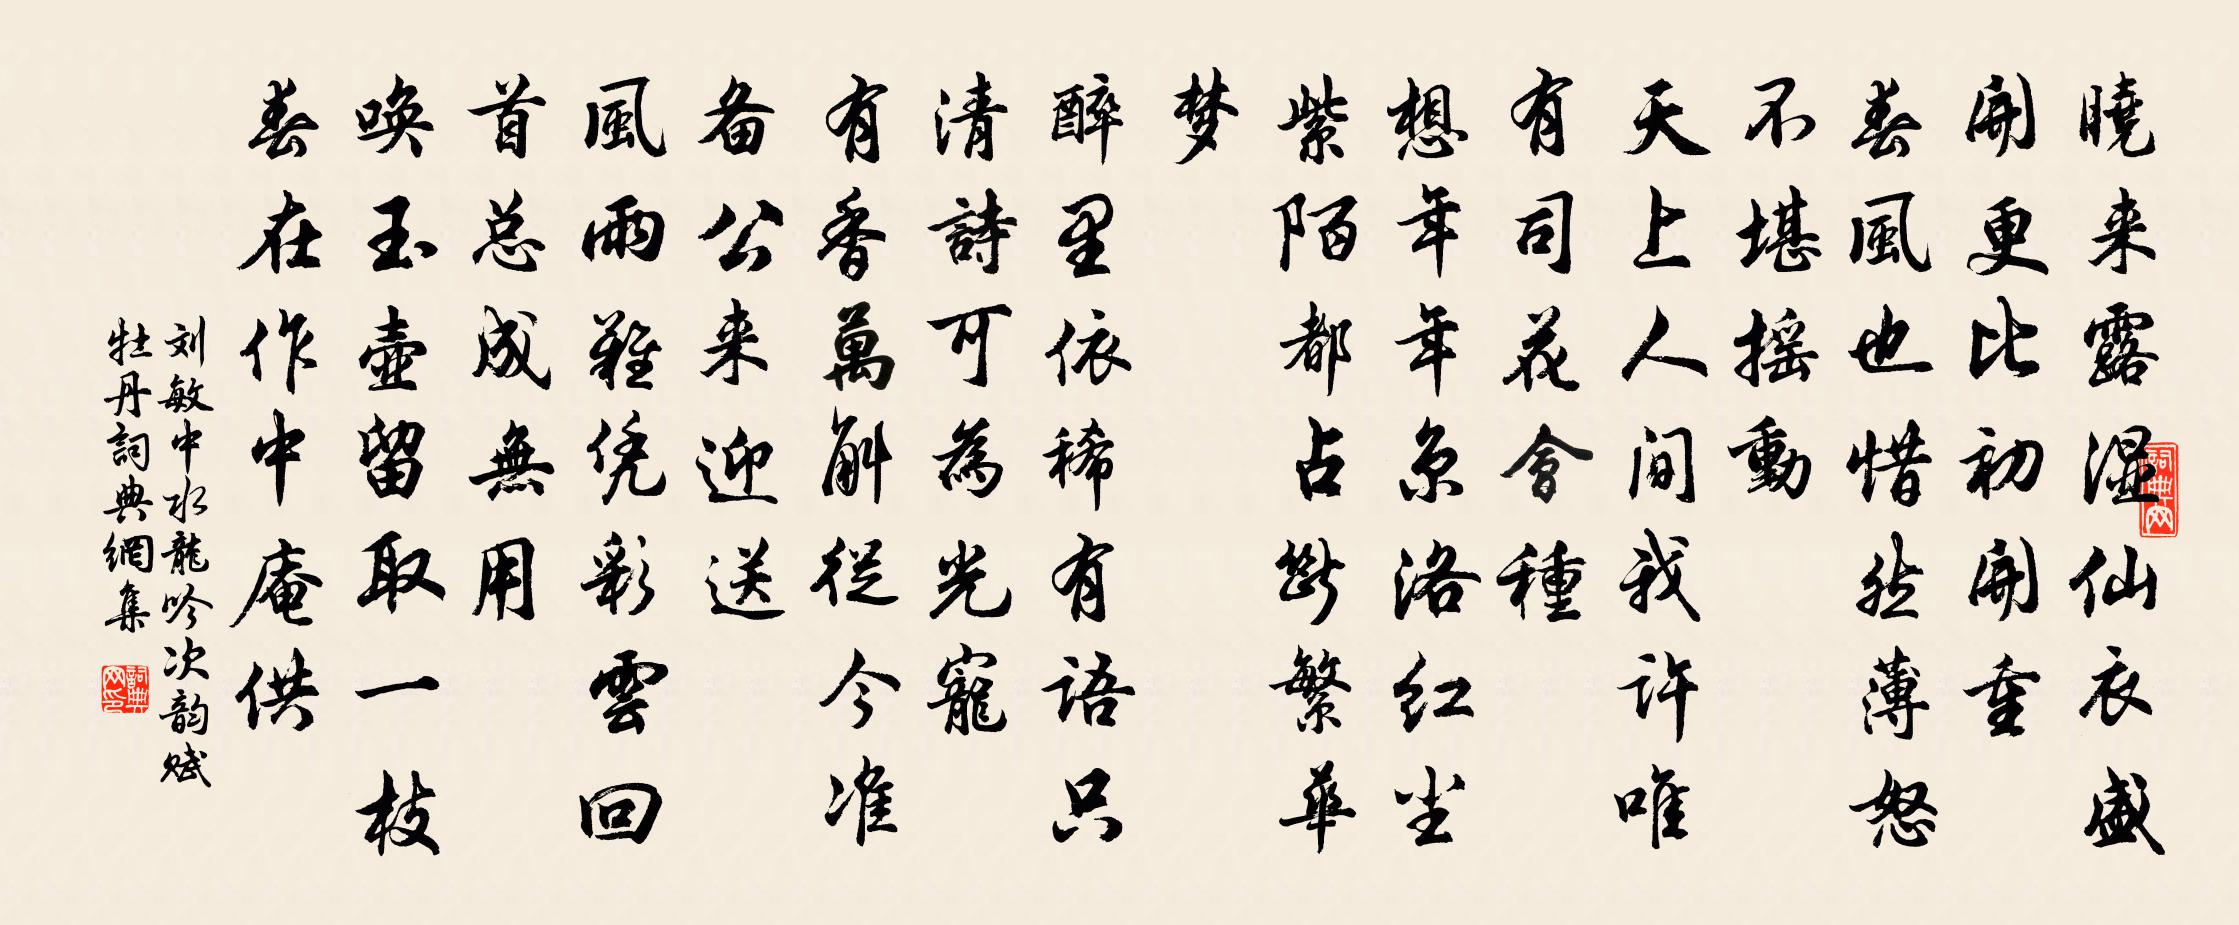 曉来露湿仙衣盛
開更比初開重
春風也惜然薄怒
不堪摇動
天上人間我许唯
有司花會種
想年年京洛红尘
紫陌都占断繁華
梦
醉里依稀有语只
清詩可為光寵
有香萬斛從今准
备公来迎送
風雨難凭彩雲回
首总成無用
唤玉壶留取一枝
春在作中庵供
刘敏中水龍吟次韵赋
牡丹詞典網集
詞典网
詞典网印